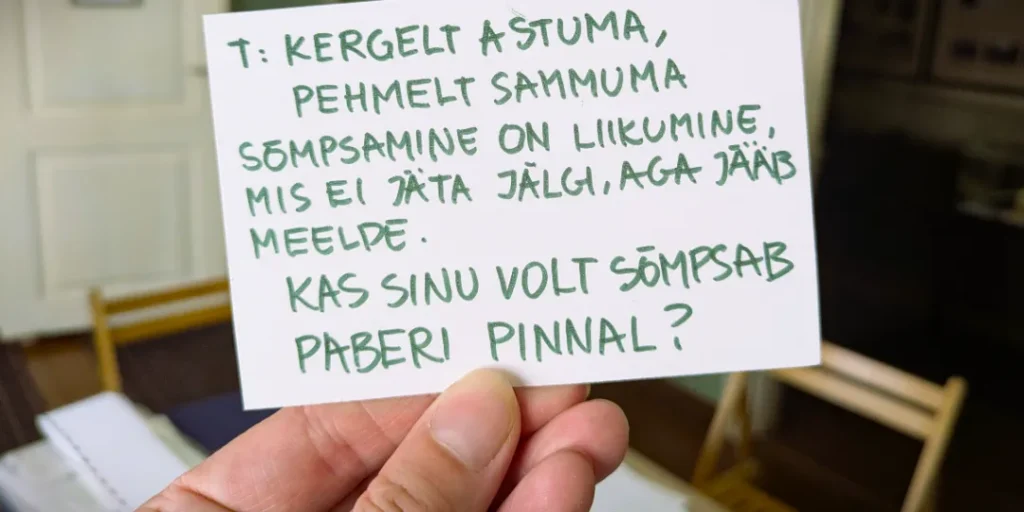 T: KERGELT ASTUMA,
PEHMELT SAMMUMA
SÕMPSAMINE ON LIIKUMINE,
MIS EI JÄTA JÄLGI, AGA JÄÄB
MEELDE.
KAS SINU VOLT SÕMPSAB
PABERI PINNAL?